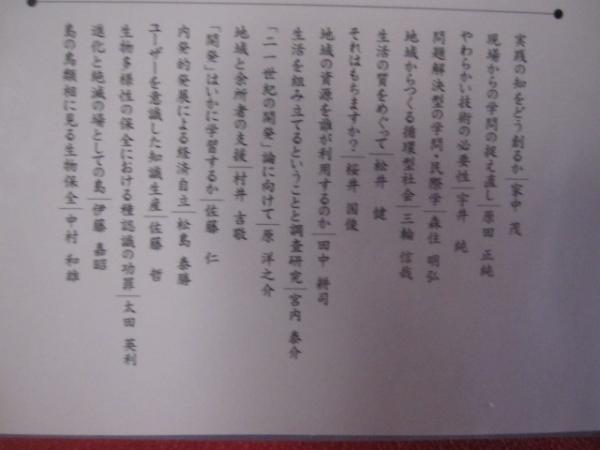 実践の知をどう創るか│家中 茂
現場からの学問の捉え直し│原田 正純
やわらかい技術の必要性│宇井 純
問題解決型の学問・民際学│森住 明弘
地域からつくる循環型社会│三輪 信哉
生活の質をめぐって│松井 健
それはもちますか?│桜井 国俊
地域の資源を誰が利用するのか│田中 耕司
生活を組み立てるということと調査研究│宮内 泰介
「二一世紀の開発」論に向けて│原 洋之介
地域と余所者の支援│村井 吉敬
「開発」はいかに学習するか│佐藤 仁
内発的発展による経済自立│松島 泰勝
ユーザーを意識した知識生産│佐藤 哲
生物多様性の保全における種認識の功罪│太田 英利
進化と絶滅の場としての島│伊藤 嘉昭
島の鳥類相に見る生物保全│中村 和雄